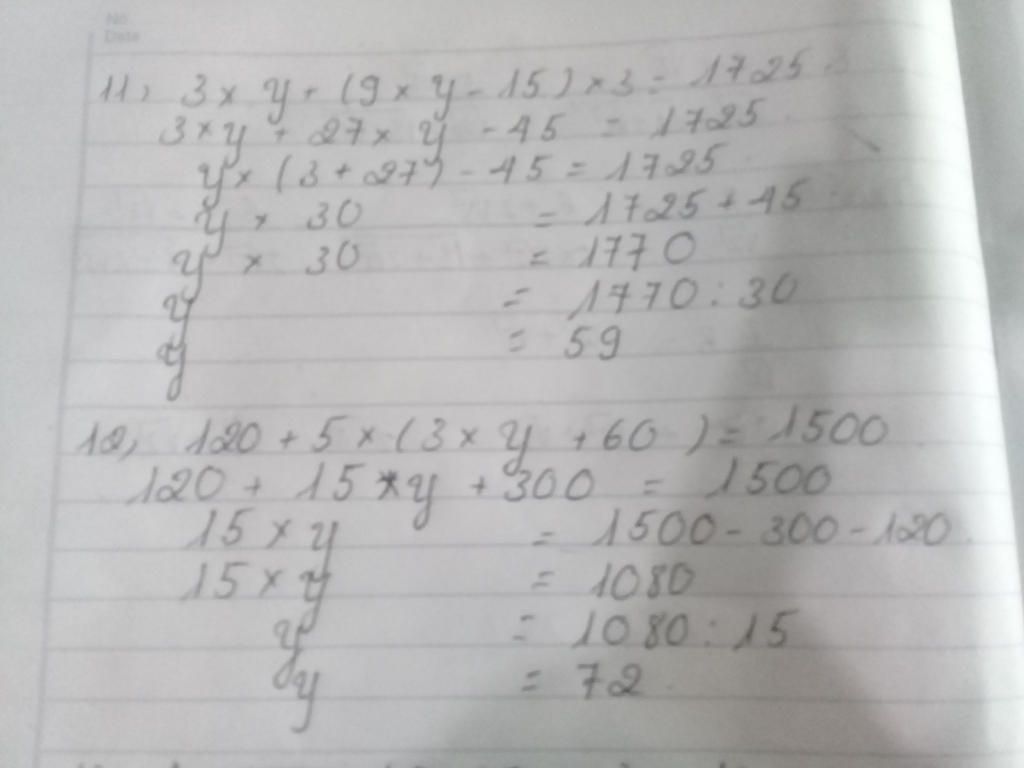 No.
Date
11, 3 × y + (9 × y - 15) × 3 = 1725
3 × y + 27 × y - 45 = 1725
y × (3 + 27) - 45 = 1725
y × 30 = 1725 + 45
y × 30 = 1770
y = 1770 : 30
y = 59
12, 120 + 5 × (3 × y + 60) = 1500
120 + 15 × y + 300 = 1500
15 × y = 1500 - 300 - 120
15 × y = 1080
y = 1080 : 15
y = 72